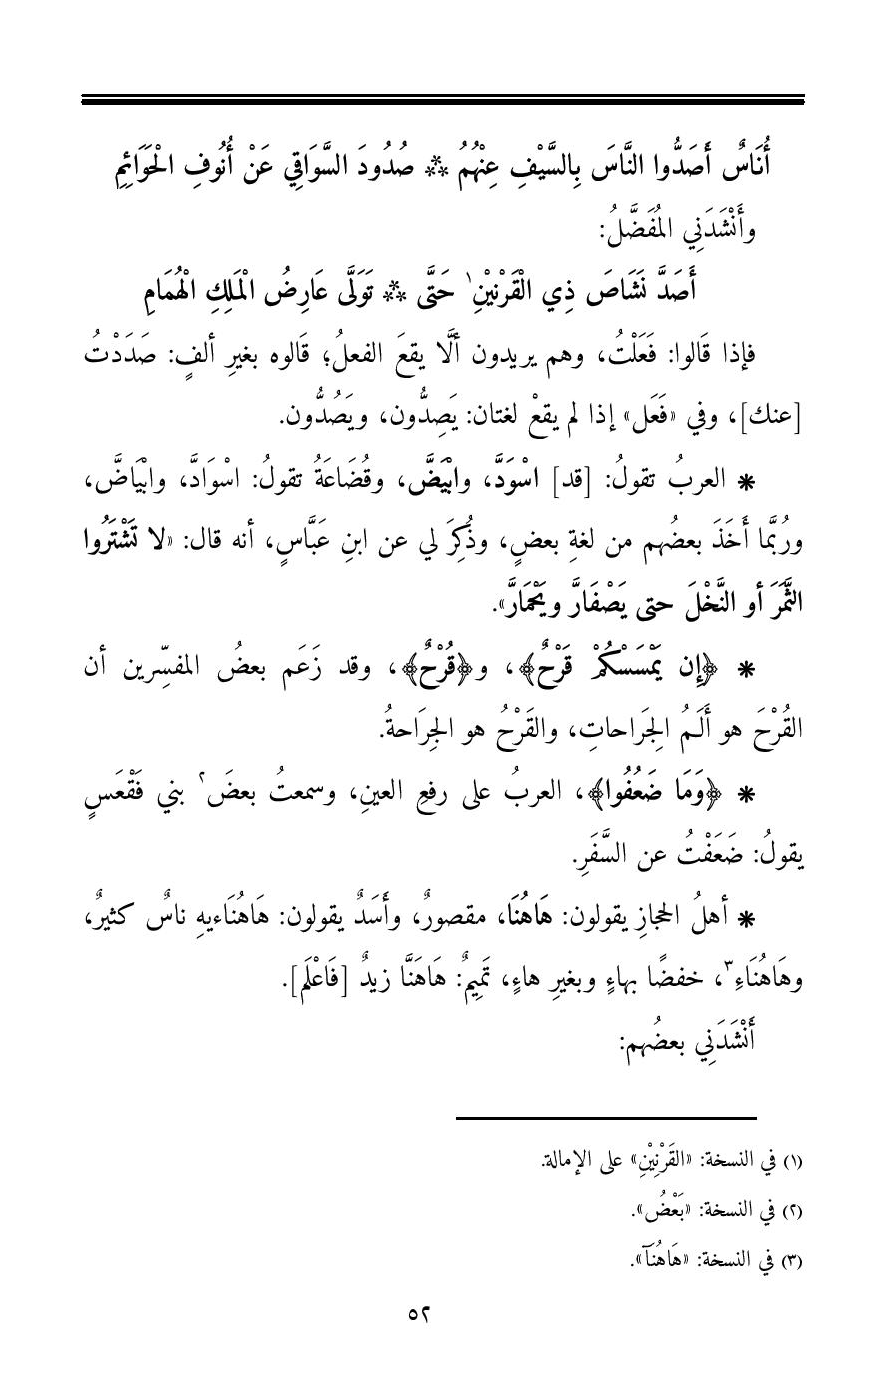 أُنَاسٌ أَصَدُّوا النَّاسَ بِالسَّيْفِ عِنْهُمُ ⁂ صُدُودَ السَّوَاقِي عَنْ أُنُوفِ الْحَوَائِمِ
وأَنْشَدَنِي المُفَضَّلُ:
أَصَدَّ نَشَاصَ ذِي الْقَرْنَيْنِ١ حَتَّى ⁂ تَوَلَّى عَارِضُ الْمَلِكِ الْهُمَامِ
فإذا قَالوا: فَعَلْتُ، وهم يريدون ألَّا يقعَ الفعلُ؛ قَالوه بغيرِ ألفٍ: صَدَدْتُ
[عنك]، وفي «فَعَل» إذا لم يقعْ لغتان: يَصِدُّون، ويَصُدُّون.
* العربُ تقولُ: [قد] اسْوَدَّ، وابْيَضَّ، وقُضَاعَةُ تقولُ: اسْوَادَّ، وابْيَاضَّ،
ورُبَّما أَخَذَ بعضُهم من لغةِ بعضٍ، وذُكِرَ لي عن ابنِ عَبَّاسٍ، أنه قال: «لا تَشْتَرُوا
الثَّمَرَ أو النَّخْلَ حتى يَصْفَارَّ ويَحْمَارَّ».
* ﴿إِن يَمْسَسْكُمْ قَرْحٌ﴾، و﴿قُرْحٌ﴾، وقد زَعَم بعضُ المفسِّرين أن
القُرْحَ هو أَلَمُ الجِرَاحاتِ، والقَرْحُ هو الجِرَاحةُ.
* ﴿وَمَا ضَعُفُوا﴾، العربُ على رفعِ العينِ، وسمعتُ بعضَ٢ بني فَقْعَسٍ
يقولُ: ضَعَفْتُ عن السَّفَرِ.
* أهلُ الحجازِ يقولون: هَاهُنَا، مقصورٌ، وأَسَدٌ يقولون: هَاهُنَاءيهِ ناسٌ كثيرٌ،
وهَاهُنَاءِ٣، خفضًا بهاءٍ وبغيرِ هاءٍ، تَمِيمٌ: هَاهَنَّا زيدٌ [فَاعْلَم].
أَنْشَدَنِي بعضُهم:
(١) في النسخة: «القَرْنِيْنِ» على الإمالة.
(٢) في النسخة: «بَعْضُ».
(٣) في النسخة: «هَاهُنَآ».
٥٢